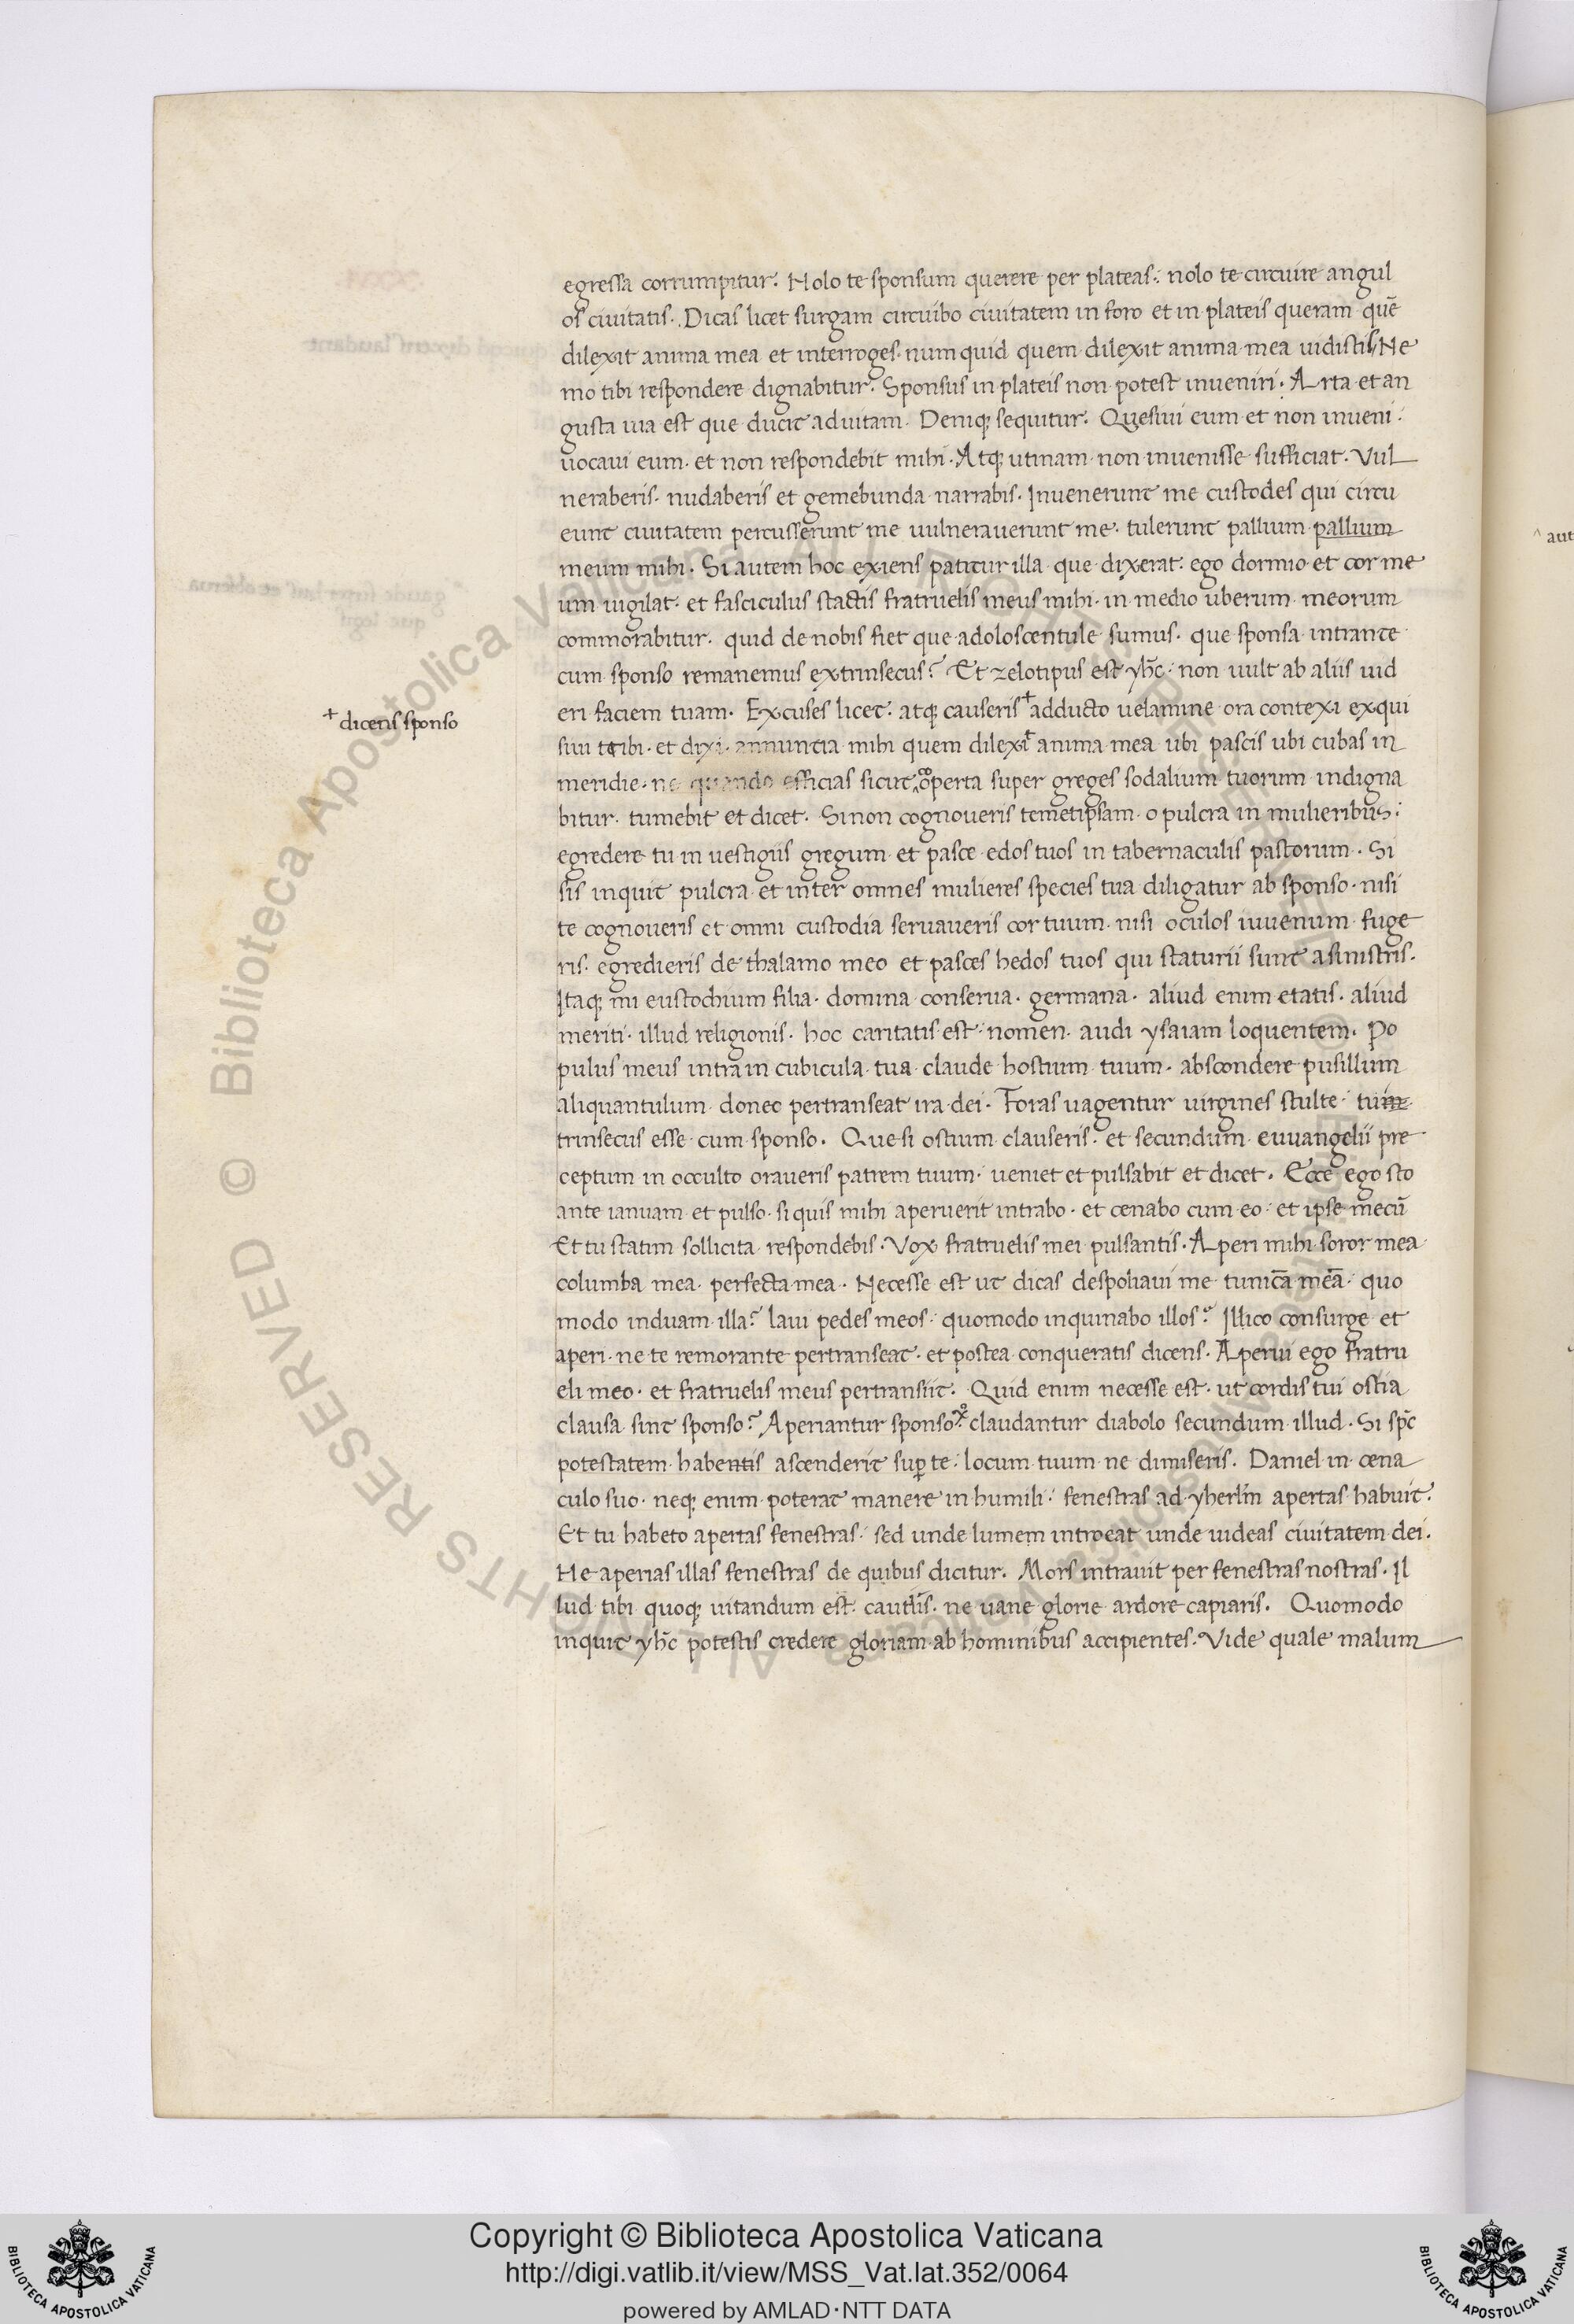 egressa corrumpitur. Nolo te sponsum querere per plateas: nolo te circuire angul
os ciuitatis. Dicas licet surgam circuibo ciuitatem in foro et in plateis queram quē
dilexit anima mea et interroges. num quid quem dilexit anima mea uidistis. Ne
mo tibi respondere dignabitur. Sponsus in plateis non potest inueniri. Arta et an
gusta uia est que ducit ad uitam. Deniq; sequitur. Quesiui eum et non inueni:
uocaui eum. et non respondebit mihi. Atq; utinam non inuenisse sufficiat. Vul
neraberis. nudaberis et gemebunda narrabis. Inuenerunt me custodes qui circu
eunt ciuitatem percusserunt me uulnerauerunt me. tulerunt pallium pallium
meum mihi. Si autem hoc exiens patitur illa que dixerat: ego dormio et cor me
um uigilat. et fasciculus stactis fratruelis meus mihi. in medio uberum meorum
commorabitur. quid de nobis fiet que adoloscentule sumus. que sponsa intrante
cum sponso remanemus extrinsecus? Et zelotipus est yħc: non uult ab aliis uid
+ dicens sponso
eri faciem tuam. Excuses licet. atq; causeris + adducto uelamine ora contexi exqui
siui te tibi. et dixi. annuntia mihi quem dilexit anima mea ubi pascis ubi cubas in
meridie. ne quando efficias sicut coperta super greges sodalium tuorum indigna
bitur. tumebit et dicet. Si non cognoueris temetipsam o pulcra in mulieribus:
egredere tu in uestigiis gregum et pasce edos tuos in tabernaculis pastorum. Si
sis inquit pulcra et inter omnes mulieres species tua diligatur ab sponso. nisi
te cognoueris et omni custodia seruaueris cor tuum. nisi oculos iuuenum fuge
ris. egredieris de thalamo meo et pasces hedos tuos qui staturii sunt a sinistris.
Itaq; mi eustochium filia. domina conserua. germana. aliud enim etatis. aliud
meriti. illud religionis. hoc caritatis est nomen. audi ysaiam loquentem. Po
pulus meus intra in cubicula tua claude hostium tuum. abscondere pusillum
aliquantulum donec pertranseat ira dei. Foras uagentur uirgines stulte: tu in
trinsecus esse cum sponso. Que si ostium clauseris. et secundum euuangelii pre
ceptum in occulto oraueris patrem tuum. ueniet et pulsabit et dicet. Ecce ego sto
ante ianuam et pulso. si quis mihi aperuerit intrabo. et cenabo cum eo: et ipse mecū
Et tu statim sollicita respondebis. Vox fratruelis mei pulsantis. Aperi mihi soror mea
columba mea. perfecta mea. Necesse est ut dicas despoliaui me tunicā meā. quo
modo induam illa? laui pedes meos. quomodo inquinabo illos? Illico consurge et
aperi. ne te remorante pertranseat. et postea conqueratis dicens. Aperui ego fratru
eli meo. et fratruelis meus pertransiit. Quid enim necesse est. ut cordis tui ostia
clausa sint sponso? Aperiantur sponso claudantur diabolo secundum illud. Si spc̄
potestatem habentis ascenderit sup te: locum tuum ne dimiseris. Daniel in cena
culo suo. neq; enim poterat manere in humili: fenestras ad yherlm̄ apertas habuit.
Et tu habeto apertas fenestras. sed unde lumem introeat unde uideas ciuitatem dei.
Ne aperias illas fenestras de quibus dicitur. Mors intrauit per fenestras nostras. Il
lud tibi quoq; uitandum est. ne uane glorie ardore capiaris. Quomodo
inquit yħc potestis credere gloriam ab hominibus accipientes. Vide quale malum
^ aut
© Biblioteca Apostolica Vaticana ALL RIGHTS RESERVED
Copyright © Biblioteca Apostolica Vaticana
http://digi.vatlib.it/view/MSS_Vat.lat.352/0064
powered by AMLAD·NTT DATA
BIBLIOTECA APOSTOLICA VATICANA
BIBLIOTECA APOSTOLICA VATICANA